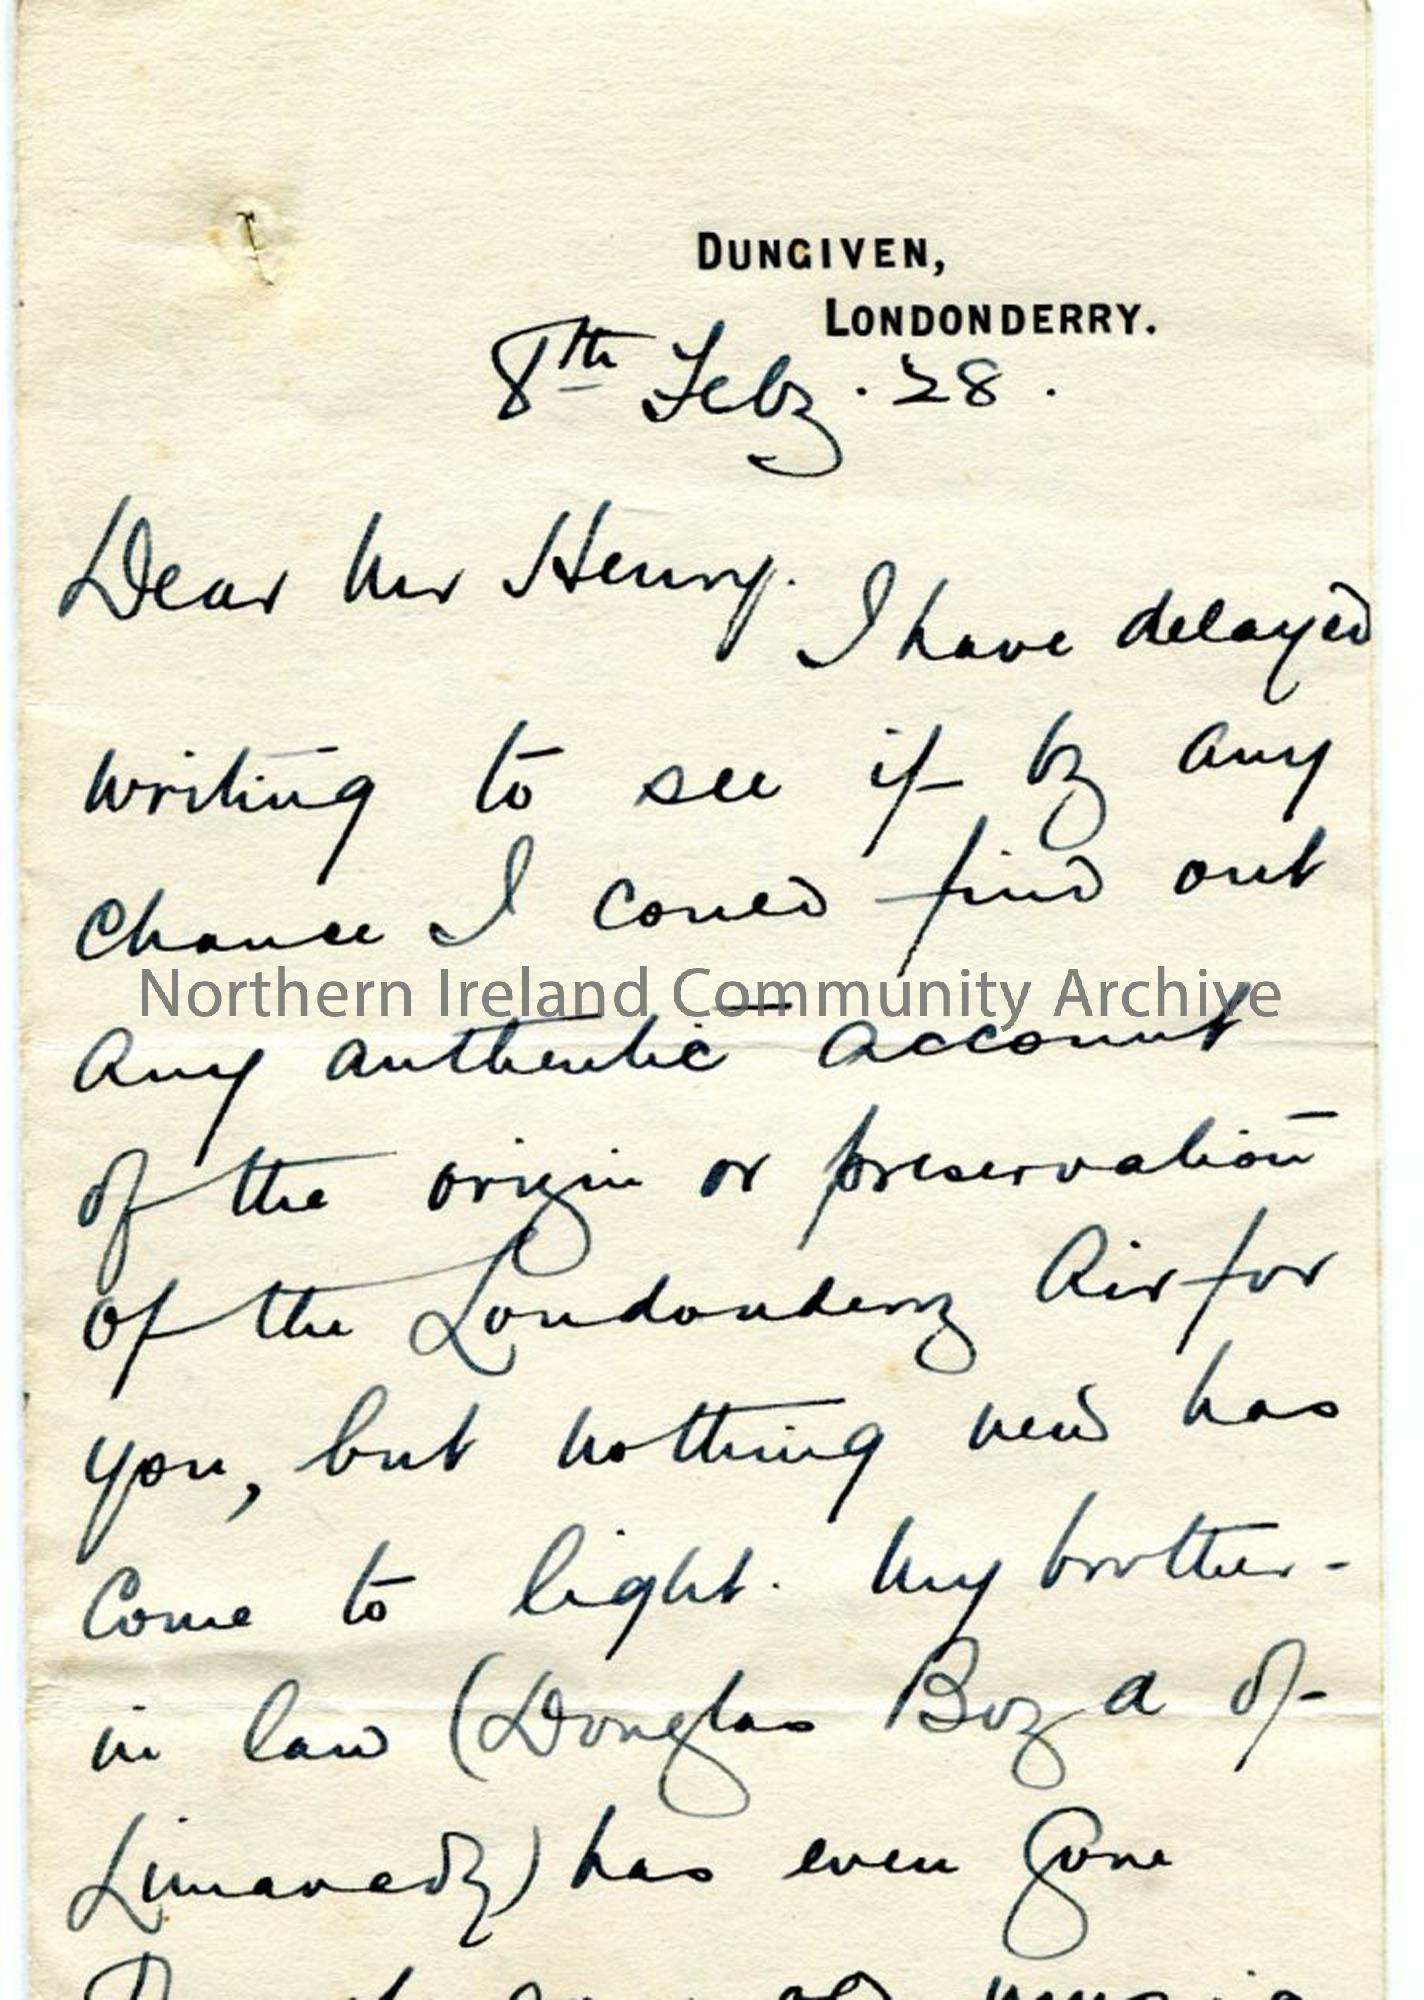 DUNGIVEN,
LONDONDERRY.
8th Feby. 28.
Dear Mr Henry.
I have delayed
writing to see if by any
chance I could find out
Northern Ireland Community Archive
any authentic account
of the origin or preservation
of the Londonderry Air for
you, but nothing new has
come to light. My brother-
in law (Douglas Boyd of
Limavady) has even gone